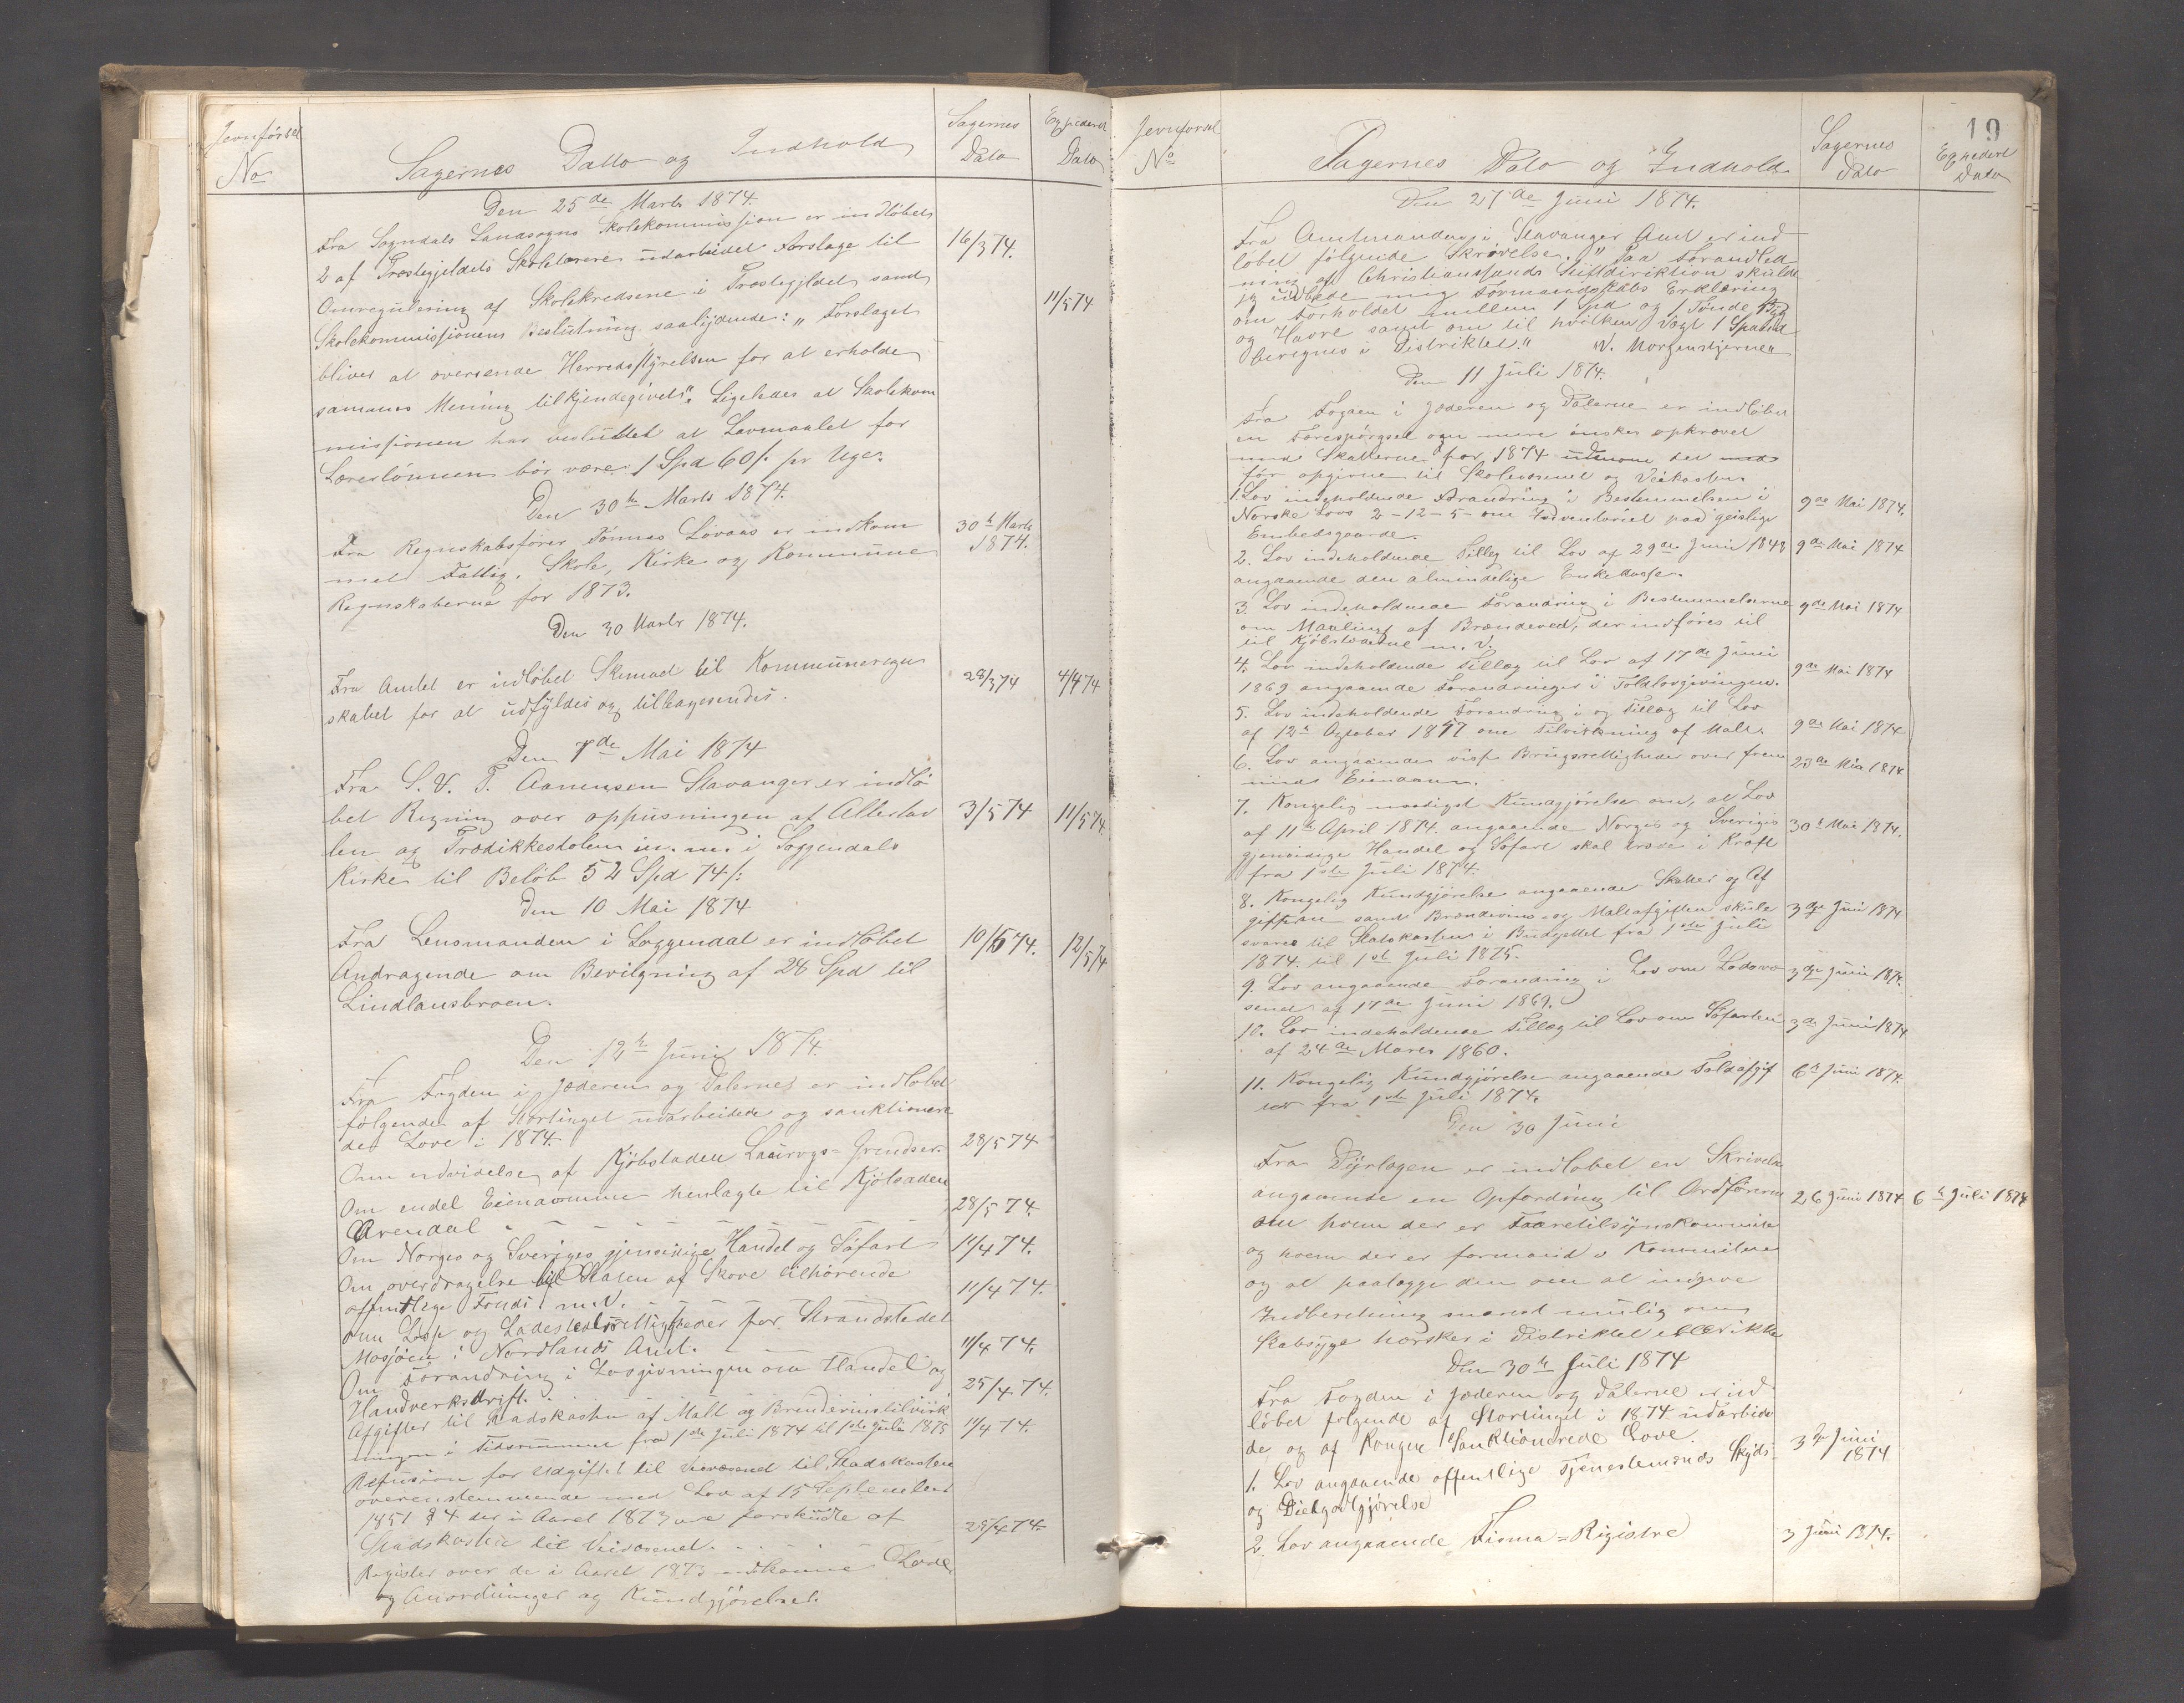 Jevnførsel
No
Sagernes Datto og Indhold
Sagernes
Dato
Expederet
Dato
Den 25de Marts 1874.
Fra Sogndals Landsogns Skolekommission er indløbet
2 af Præstegjeldets Skolelærere udarbeidet Forslage til
16/3 74.
Omregulering af Skolekredsene i Præstegjeldet samt
11/5 74
Skolekommissionens Beslutning saalydende: „Forslaget
bliver at oversende Herredsstyrelsen for at erholde
sammes Mening tilkjendegivet". Ligeledes at Skolekom
missionen har besluttet at Lavmaalet for
Lærerlønnen bør være 1 Spd 60 s. pr Uge.
Den 30te Marts 1874.
Fra Regnskabsfører Tønnes Løvaas er indkom
30te Marts
1874.
met Fattig, Skole, Kirke og Kommune
Regnskaberne for 1873.
Den 30 Marts 1874.
Fra Amtet er indløbet Skemaet til Kommuneregn
28/3 74
4/4 74
skabet for at udfyldes og tilbagesendes.
Den 7de Mai 1874
Fra S. V. T. Aanensen Stavanger er indlø
bet Regning over oppusningen af Altertav
3/5 74
11/5 74.
len og Prædikkestolen m. m. i Soggendals
Kirke til Beløb 52 Spd 74 s:
Den 10 Mai 1874
Fra Lensmanden i Soggendal er indløbet
10/5 74.
12/5 74
Andragende om Bevilgning af 28 Spd til
Lindlansbroen.
Den 12te Juni 1874.
Fra Fogden i Jæderen og Dalernes er indløbet
følgende af Stortinget udarbeidede og sanktionere
des Love i 1874.
Om udvidelse af Kjøbstaden Laurvigs= Grendser.
28/5 74
Om endel Eiendomme henlagte til Kjøbstaden
Arendal
28/5 74.
Om Norges og Sveriges gjensidige Handel og Søfart
11/4 74.
Om overdragelse til Staten af Skove tilhørende
offentlige Fonds m.V.
11/4 74.
Om Losse og Ladestedsrettigheder for Strandstedet
Mosjøen i Nordlands Amt.
11/4 74.
Om Forandring i Lovgivningen om Handel og
Handverksdrift.
25/4 74.
Afgifter til Stadskassen af Malt og Brendevinstilvirk
ningen i Tidsrummet fra 1ste Juli 1874 til 1ste Juli 1875
11/4 74.
Refusion for Udgiftet til Veivæsenet til Stadskassen
overenstemmende med Lov af 15 September
1851 § 4 der i Aaret 1873 ere forskudte af
Stadskassen til Veivæsenet.
25/4 74.
Register over de i Aaret 1873 udkomne Love
og Anordninger og Kundgjørelser.
19
Jevnførsel
No
Sagernes Dato og Indhold
Sagernes
Dato
Expedert
Dato
Den 27de Juni 1874.
Fra Amtmanden i Stavanger Amt er ind
løbet følgende Skrivelse. „Paa Foranled
ning af Christianssands Stiftdirektion skulde
jeg udbede mig Formandskabs Erklæring
om Forholdet mellem 1 Spd og 1 Tønde Byg
og Havre samt om til hvilken Vægt 1 Spand
beregnes i Distriktet." W. Morgenstjerne
Den 11 Juli 1874.
Fra Fogden i Jæderen og Dalerne er indløbet
en Forespørgsel om mere ønskes opkrævet
med Skatterne for 1874 udenom det med
før opgivne til Skolevæsenet og Veikassen.
1. Lov indeholdende Forandring i Bestemmelsen i
Norske Lovs 2-12-5- om Inventariet paa geislige
9de Mai 1874.
Embedsgaarde.
2. Lov indeholdende Tilleg til Lov af 29de Juni 1848
9de Mai 1874
angaaende den almindelige Enkekasse.
3. Lov indeholdende Forandring i Bestemmelserne
9de Mai 1874
om Maaling af Brændeved, der indføres til
til Kjøbstæderne m.V.
4. Lov indeholdende Tillæg til Lov af 17de Juni
9de Mai 1874
1869 angaaende Forandringer i Toldlovgivningen.
5. Lov indeholdende Forandring i og Tillæg til Lov
af 12te October 1857 om Tilvirkning af Malt.
9de Mai 1874
6. Lov angaaende visse Brugsrettigheder over frem
23de Mai 1874
meds Eiendom.
7. Kongelig naadigst Kundgjørelse om, at Lov
af 11te April 1874. angaaende Norges og Sveriges
30te Mai 1874.
gjensidige Handel og Søfart skal træde i Kraft
fra 1ste Juli 1874.
8. Kongelig Kundgjørelse angaaende Skatter og Af
gifter samt Brændevins- og Maltafgiften skule
3de Juni 1874
svares til Statskassen i Budgettet fra 1ste Juli
1874. til 1ste Juli 1875.
9. Lov angaaende Forandring i Lov om Lodsvæ
3de Juni 1874.
senet af 17de Juni 1869.
10. Lov indeholdende Tillæg til Lov om Søfarten
3de Juni 1874
af 24de Marts 1860.
11. Kongelig Kundgjørelse angaaende Toldafgif
6te Juni 1874.
ter fra 1ste Juli 1874.
Den 30 Juni
Fra Dyrlægen er indløbet en Skrivelse
angaaende en Opfordring til Ordføreren
26 Juni 1874
6te Juli 1874
om hvem der er Faaretilsynskommite
og hvem der er formand i Kommiteen
og at paalægge den om at indgive
Indberetning snarest mulig om
Skabsyge hersker i Distriktet eller ikke
Den 30te Juli 1874
Fra Fogden i Jæderen og Dalerne er ind
løbet følgende af Stortinget i 1874 udarbide
de og af Kongen Sanktionerede Love.
3de Juni
1874
1. Lov angaaende offentlige Tjenestemænds Skyds-
og Dietgodtgjørelse
2. Lov angaaende Firma=Registre
3 Juni 1874.